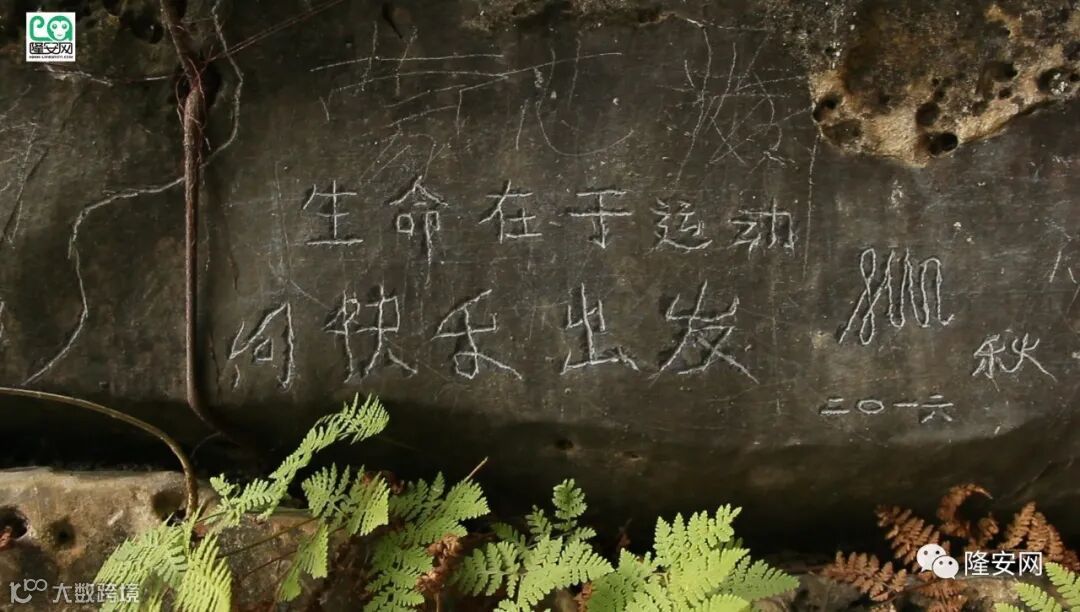 隆安网
生命在于运动
向快乐出发
秋
二〇一六
大数跨境
隆安网